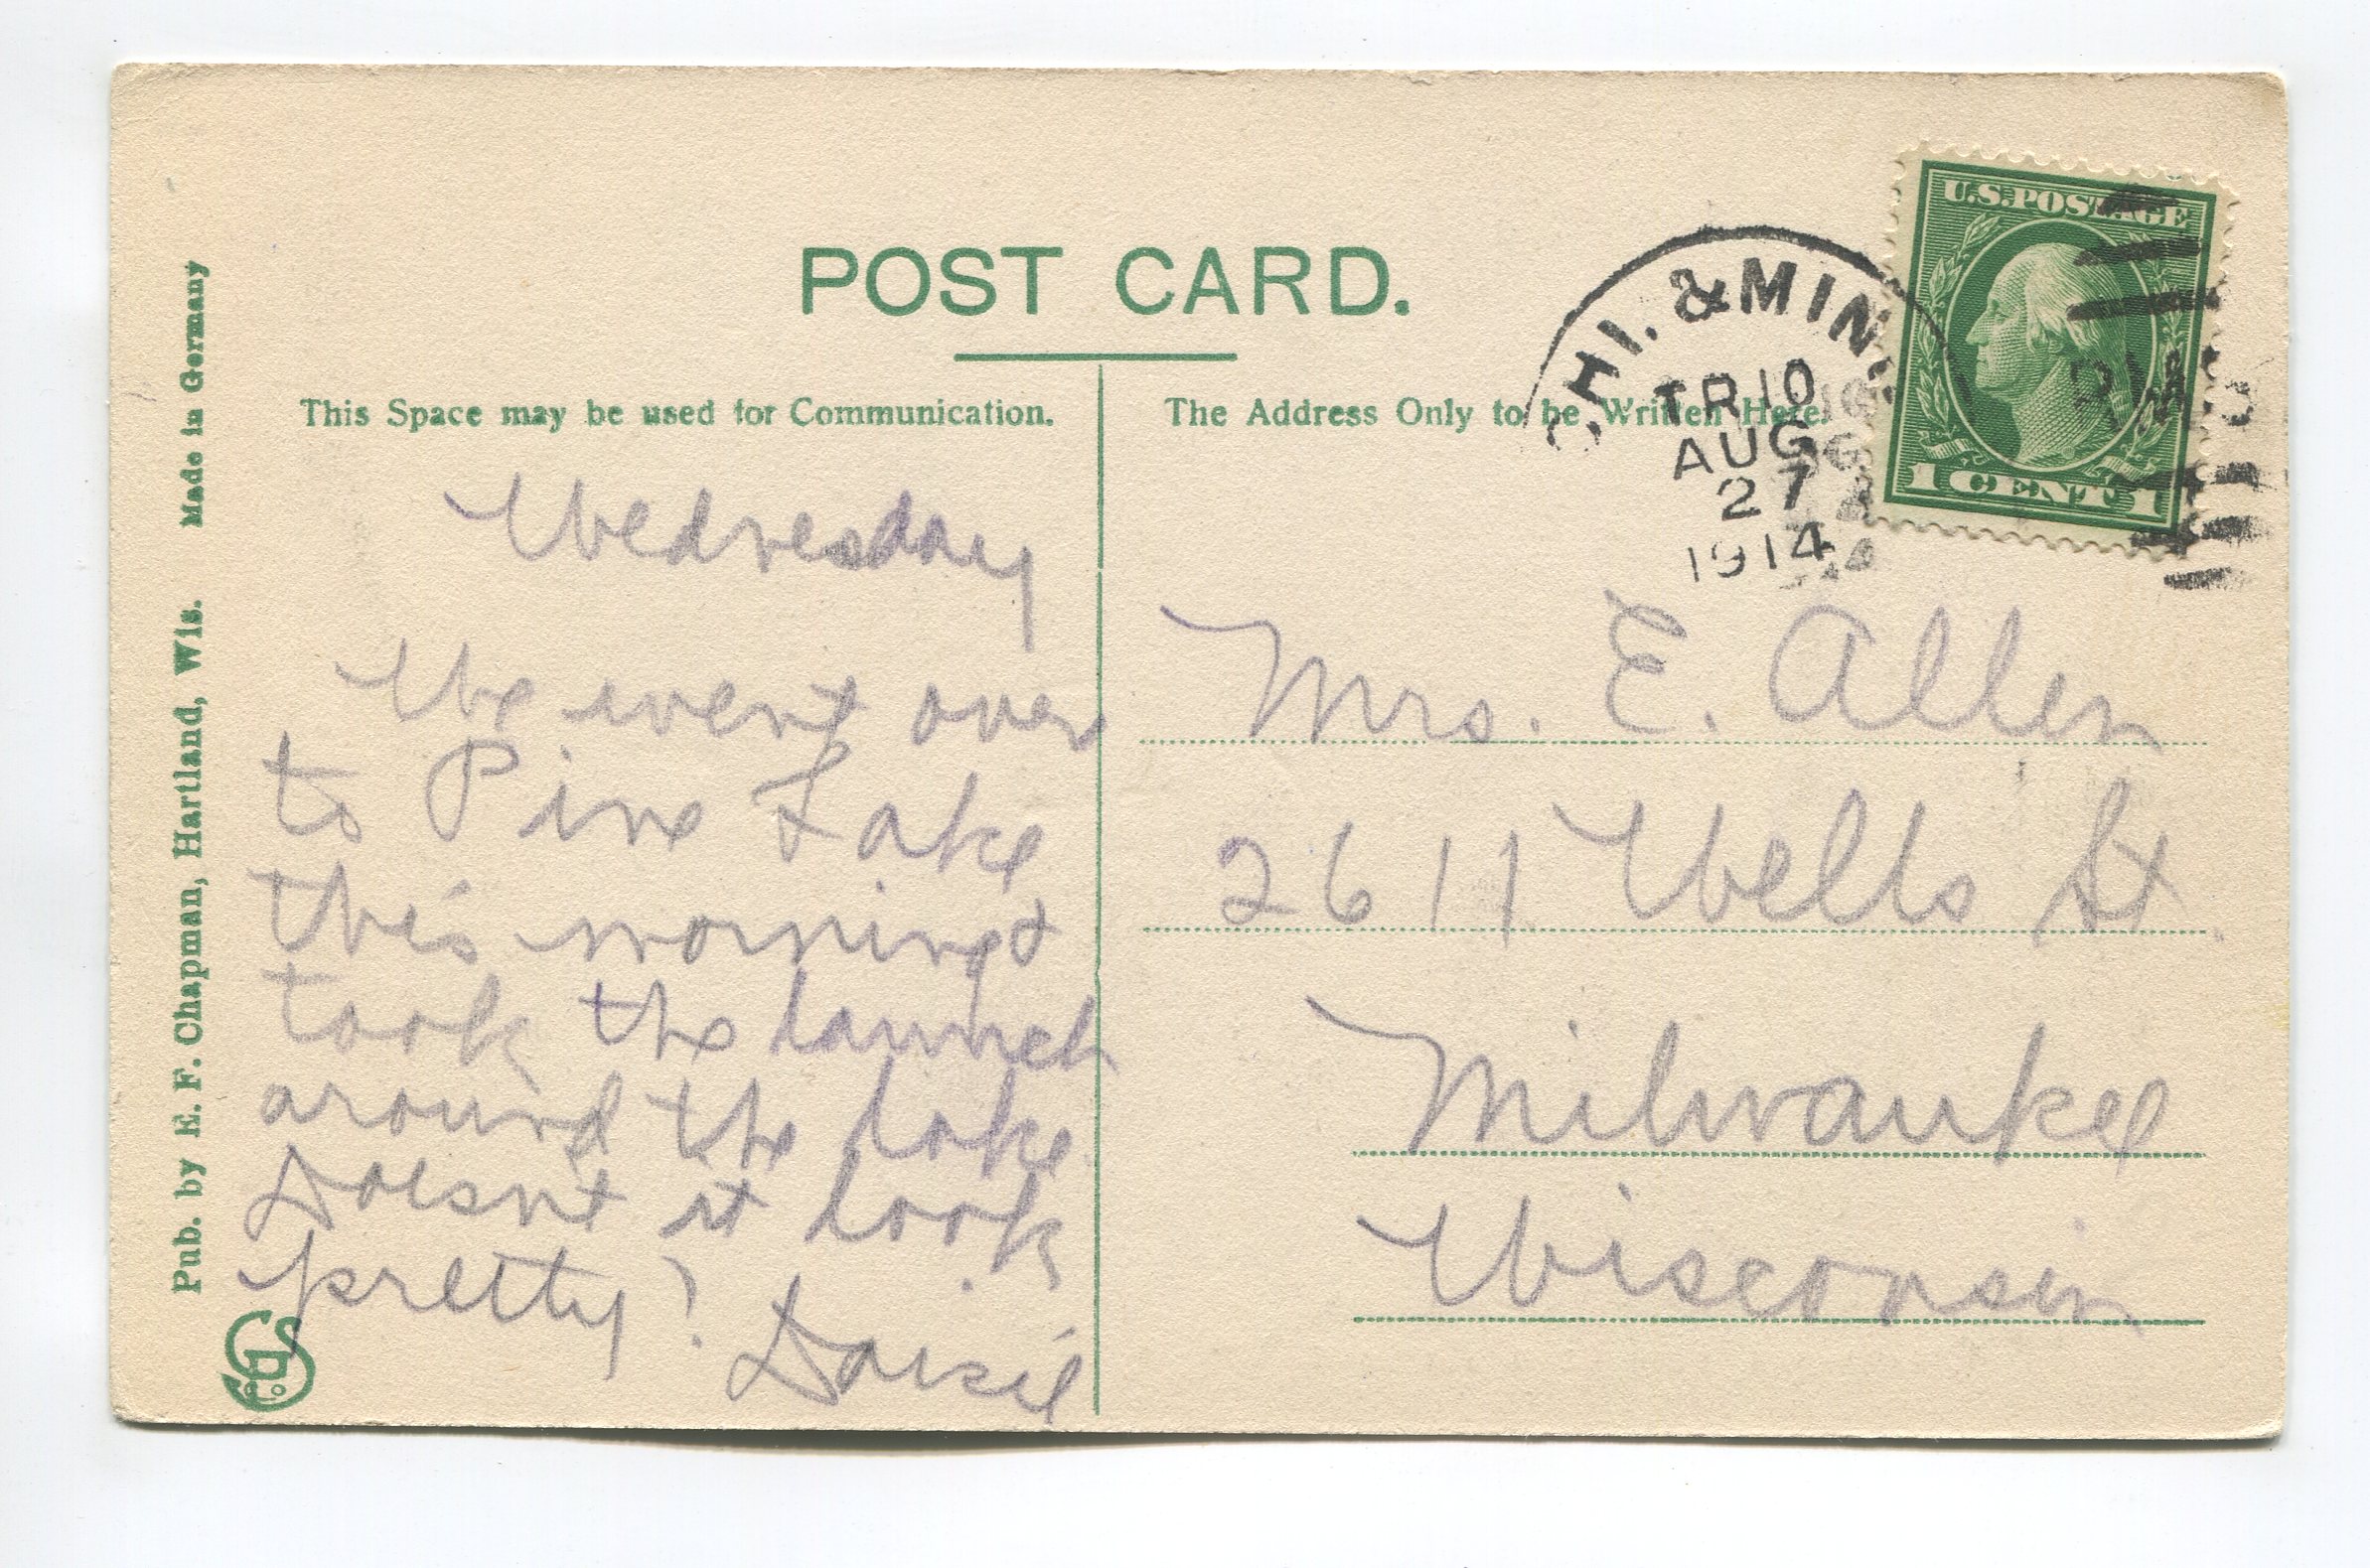 POST CARD.
This Space may be used for Communication.
The Address Only to be Written Here.
Made in Germany
Pub. by E. F. Chapman, Hartland, Wis.
CHI. & MINN
TR 10
AUG
27
1914
U.S. POSTAGE
1 CENT 1
Wednesday
We went over
to Pine Lake
this morning &
took the launch
around the lake.
Doesnt it look
pretty?
Daisie
Mrs. E. Allen
2611 Wells St.
Milwaukee
Wisconsin